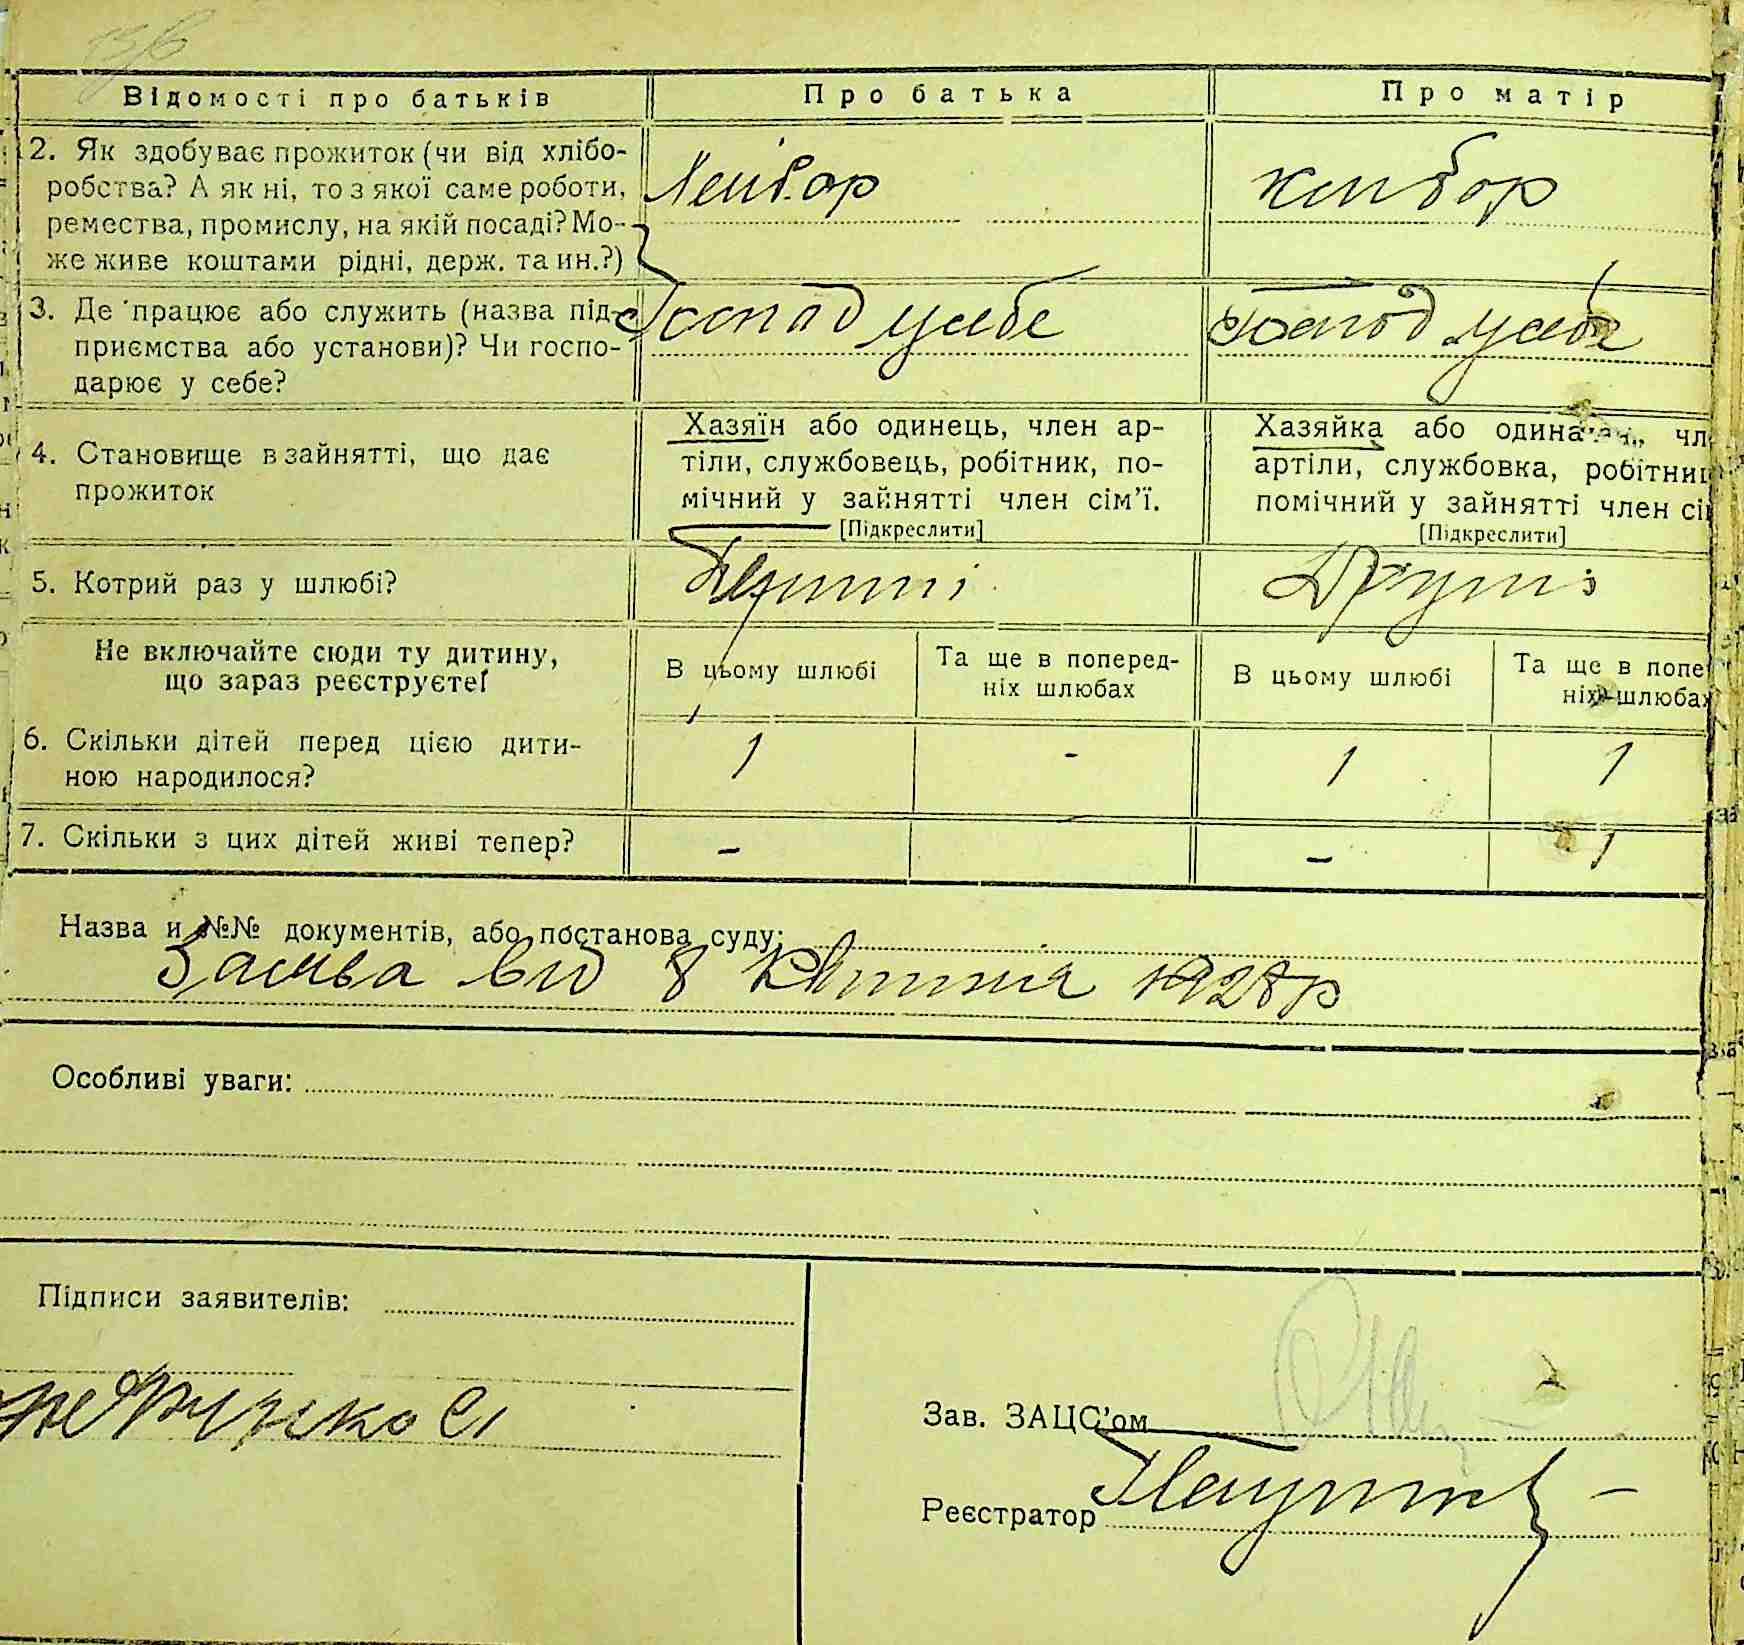 Відомості про батьків
Про батька
Про матір
2. Як здобуває прожиток (чи від хлібо-
робства? А як ні, то з якої саме роботи,
ремества, промислу, на якій посаді? Мо-
же живе коштами рідні, держ. та ин.?)
Хлибор
хлибор
3. Де працює або служить (назва під-
приємства або установи)? Чи госпо-
дарює у себе?
Господ у себе
Господ у себе
4. Становище в зайнятті, що дає
прожиток
Хазяїн або одинець, член ар-
тіли, службовець, робітник, по-
мічний у зайнятті член сім'ї.
[Підкреслити]
Хазяйка або одиначка, чл
артіли, службовка, робітниц
помічний у зайнятті член сі
[Підкреслити]
5. Котрий раз у шлюбі?
Перший
Другий
Не включайте сюди ту дитину,
що зараз реєструєте!
В цьому шлюбі
Та ще в поперед-
ніх шлюбах
В цьому шлюбі
Та ще в попе
ніх шлюбах
6. Скільки дітей перед цією дити-
ною народилося?
1
-
1
1
7. Скільки з цих дітей живі тепер?
-
-
1
Назва и №№ документів, або постанова суду:
Заява від 8 квітня 1928 р
Особливі уваги:
Підписи заявителів:
Зав. ЗАЦС'ом
Реєстратор